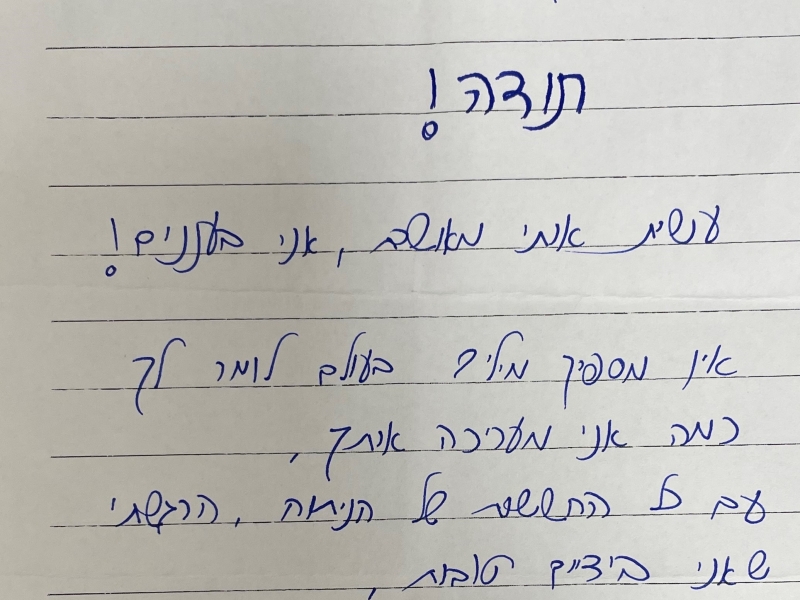 תודה!
עשית אותי מאושרת, אני בעננים!
אין מספיק מילים בעולם לומר לך
כמה אני מעריכה אותך,
עם כל החששות של הניתוח, הרגשתי
שאני בידיים טובות,